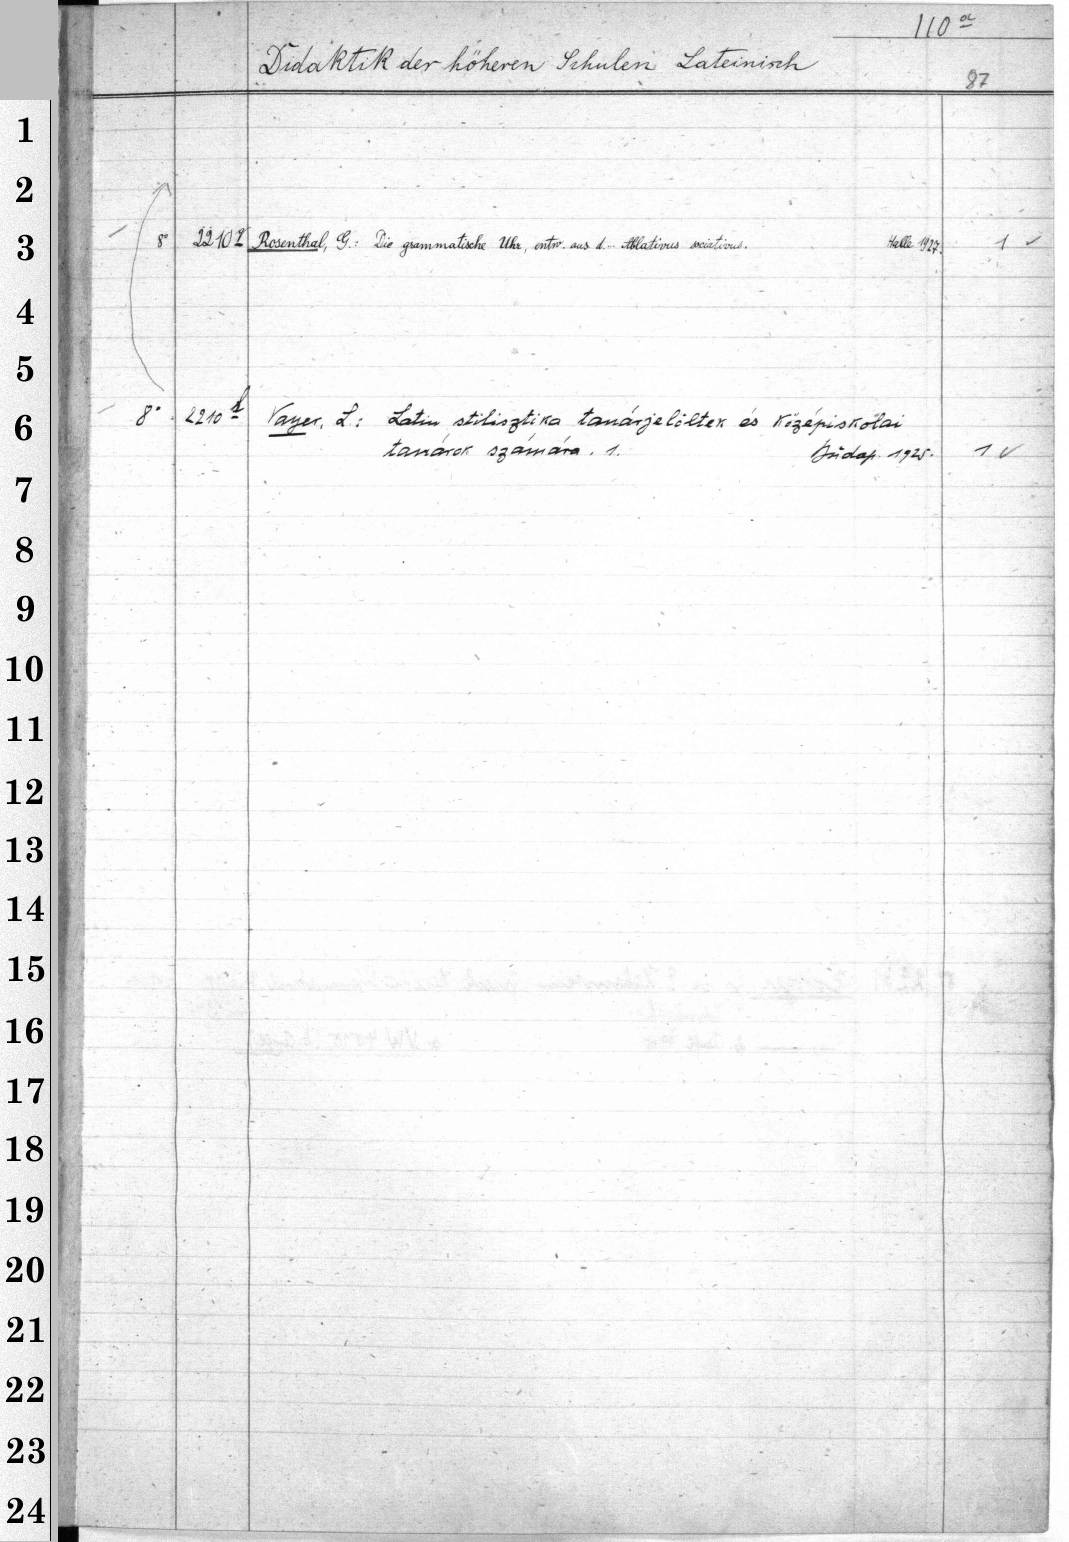 110 a
Didaktik der höheren Schulen Lateinisch
87
1
2
3 8° 2210 Rosenthal, G.: Die grammatische Uhr, entw. aus d... Ablativus sociativus. Halle 1927. 1 ✓
4
5
6 8° 2210 Vayer, L.: Latin stilisztika tanárjelöltek és középiskolai
tanárok számára. 1. Budap. 1925. 1 ✓
7
8
9
10
11
12
13
14
15
16
17
18
19
20
21
22
23
24